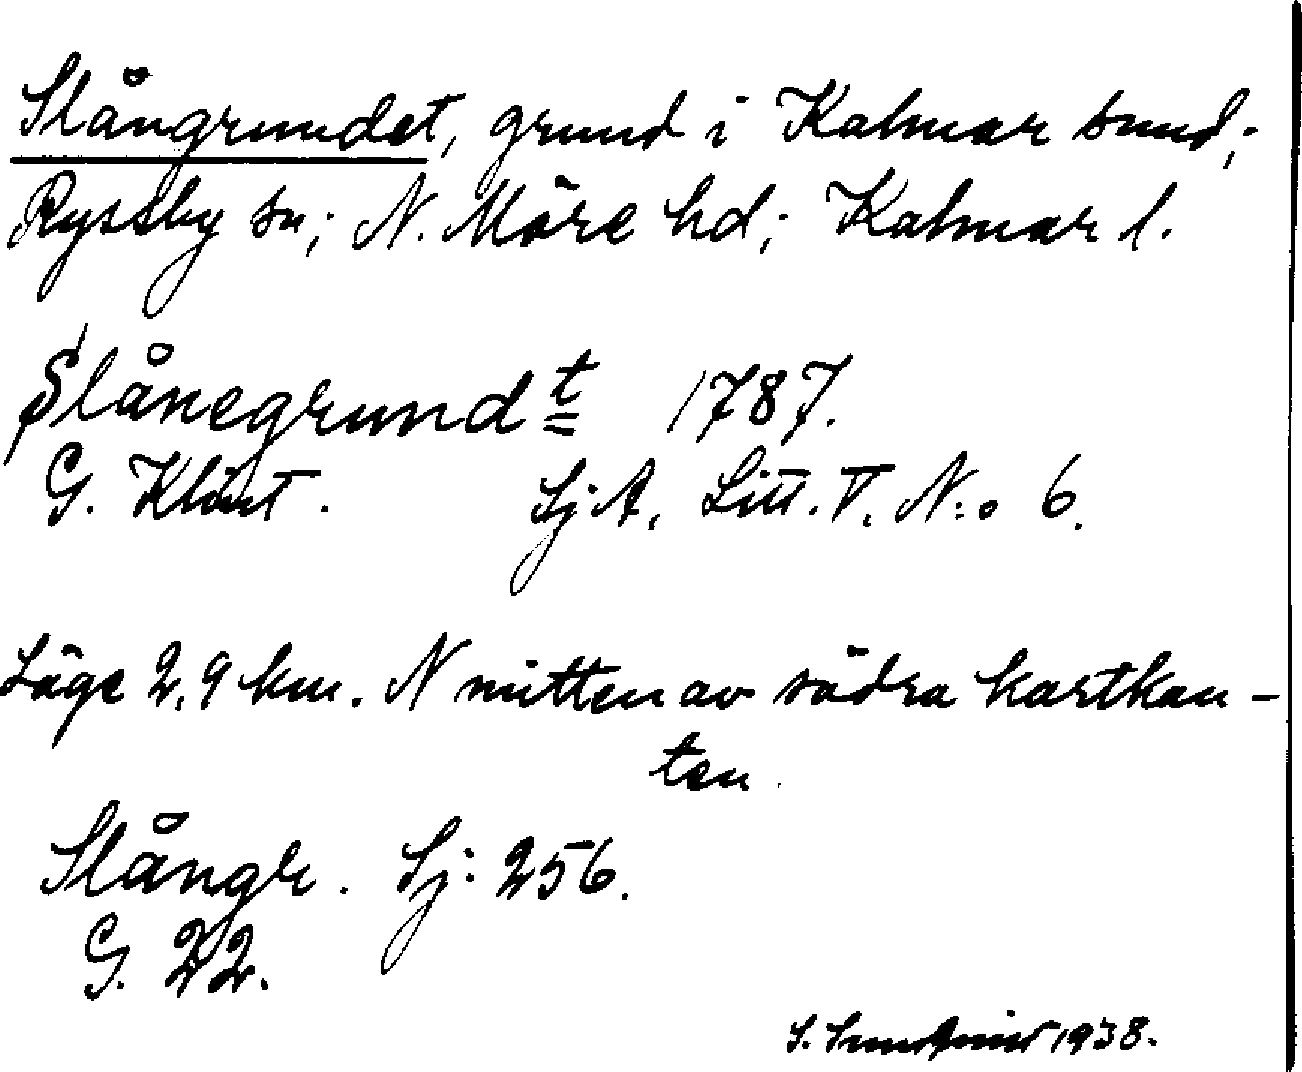 Slångrundet, grund i Kalmar sund;
Ryssby sn; N. Möre hd; Kalmar l.
Slånegrund t 1787.
G. Klint. Sj.A, Litt. V. N:o 6.
Läge 2,9 km. N mitten av södra kartkan-
ten.
Slångr. Sj: 256.
G. 22.
S. Sundqvist 1938.